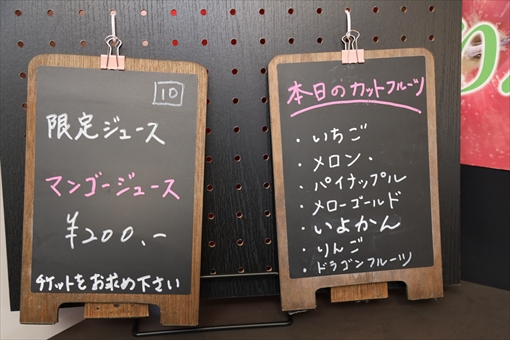 10
限定ジュース
マンゴージュース
¥200.-
チケットをお求め下さい
本日のカットフルーツ
・いちご
・メロン・
・パイナップル
・メローゴールド
・いよかん
・りんご
・ドラゴンフルーツ